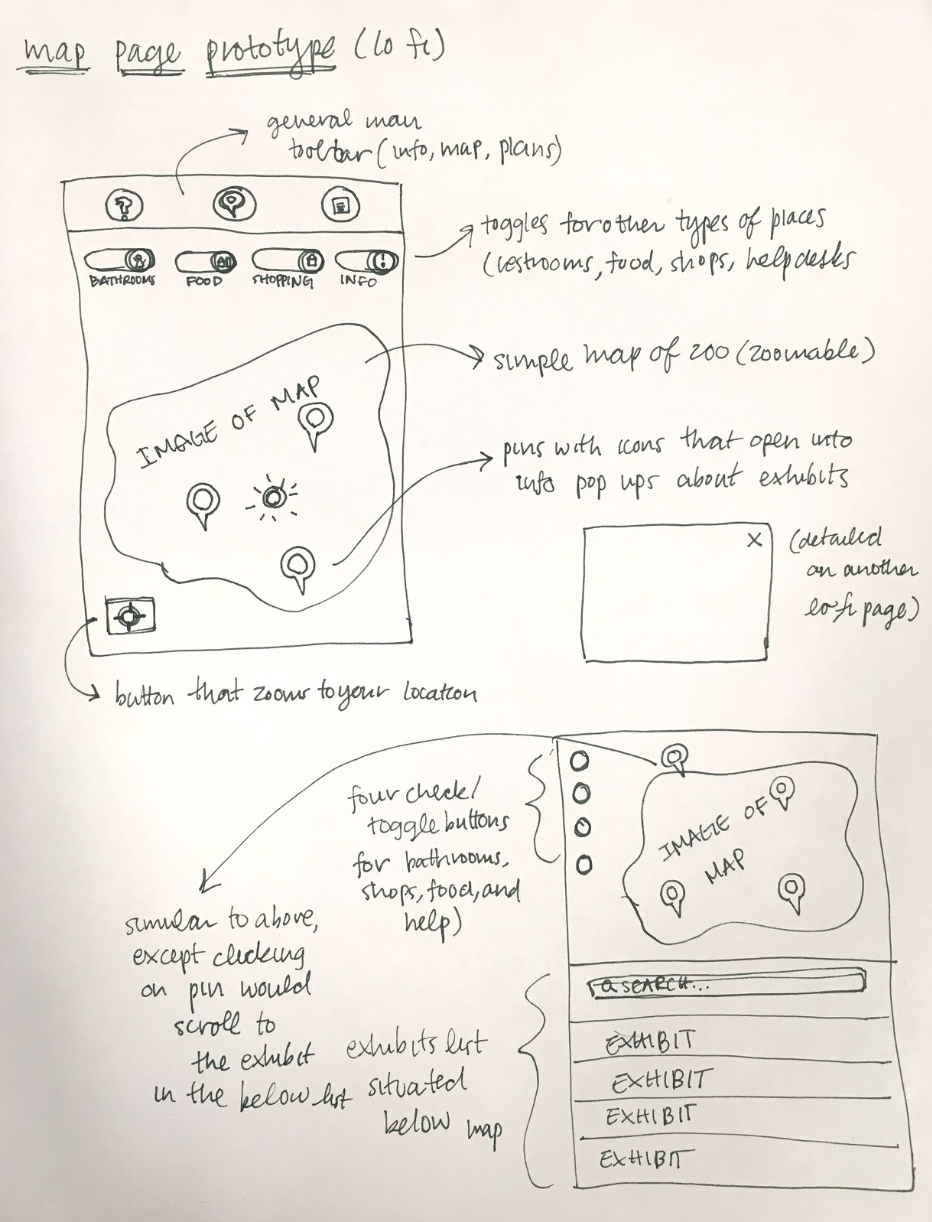 map page prototype (lo fi)
general main
toolbar (info, map, plans)
?
toggles for other types of places
(restrooms, food, shops, help desks
!
BATHROOMS FOOD SHOPPING INFO
simple map of zoo (zoomable)
IMAGE OF MAP
pins with icons that open into
info pop ups about exhibits
X
(detailed
on another
lo-fi page)
button that zooms to your location
four check/
toggle buttons
for bathrooms,
shops, food, and
help)
IMAGE OF
MAP
similar to above,
except clicking
on pin would
scroll to
the exhibit
in the below list
exhibits list
situated
below map
SEARCH...
EXHIBIT
EXHIBIT
EXHIBIT
EXHIBIT